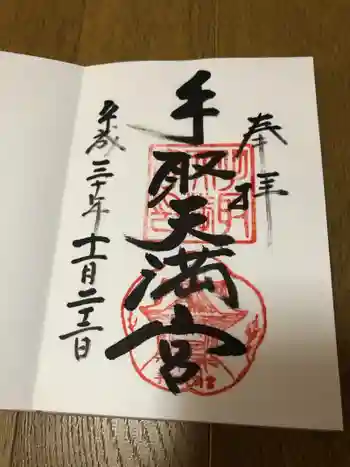 奉拝
手取天満宮
平成三十年十一月二十三日